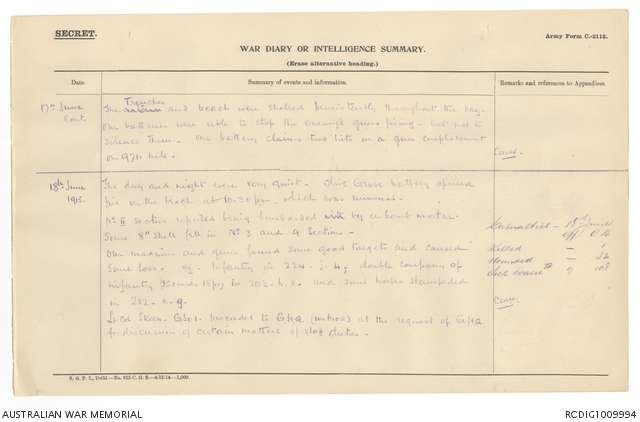 SECRET.
Army Form C.-2118.
WAR DIARY OR INTELLIGENCE SUMMARY.
(Erase alternative heading.)
Date
Summary of events and information.
Remarks and references to Appendices.
17th June
Cont.
Trenches
The and beach were shelled persistently throughout the day.
Our batteries were able to stop the enemy's guns firing - but not to
silence them. One battery claims two hits on a gun emplacement
on 971 hill.
18th June
1915.
The day and night were very quiet. Olive Grove battery opened
fire on the beach at 10.30 pm, which was unusual.
No II section reported being bombarded by a bomb mortar.
Some 8" shell fell in No 3 and 4 Sections.
Our machine and guns found some good targets and caused
some loss. Infantry in 224. ; double company of
infantry and in and some horses stampeded
in 212.
Lt Col Skeen GSO1. proceeded to GHQ (Imbros) at the request of GHQ
for discussion of certain matters of duties.
Casualties - 18th June
Off O R
Killed - 1
Wounded -
Sick evacd 9 108
S. G. P. I., Delhi
AUSTRALIAN WAR MEMORIAL
RCDIG1009994